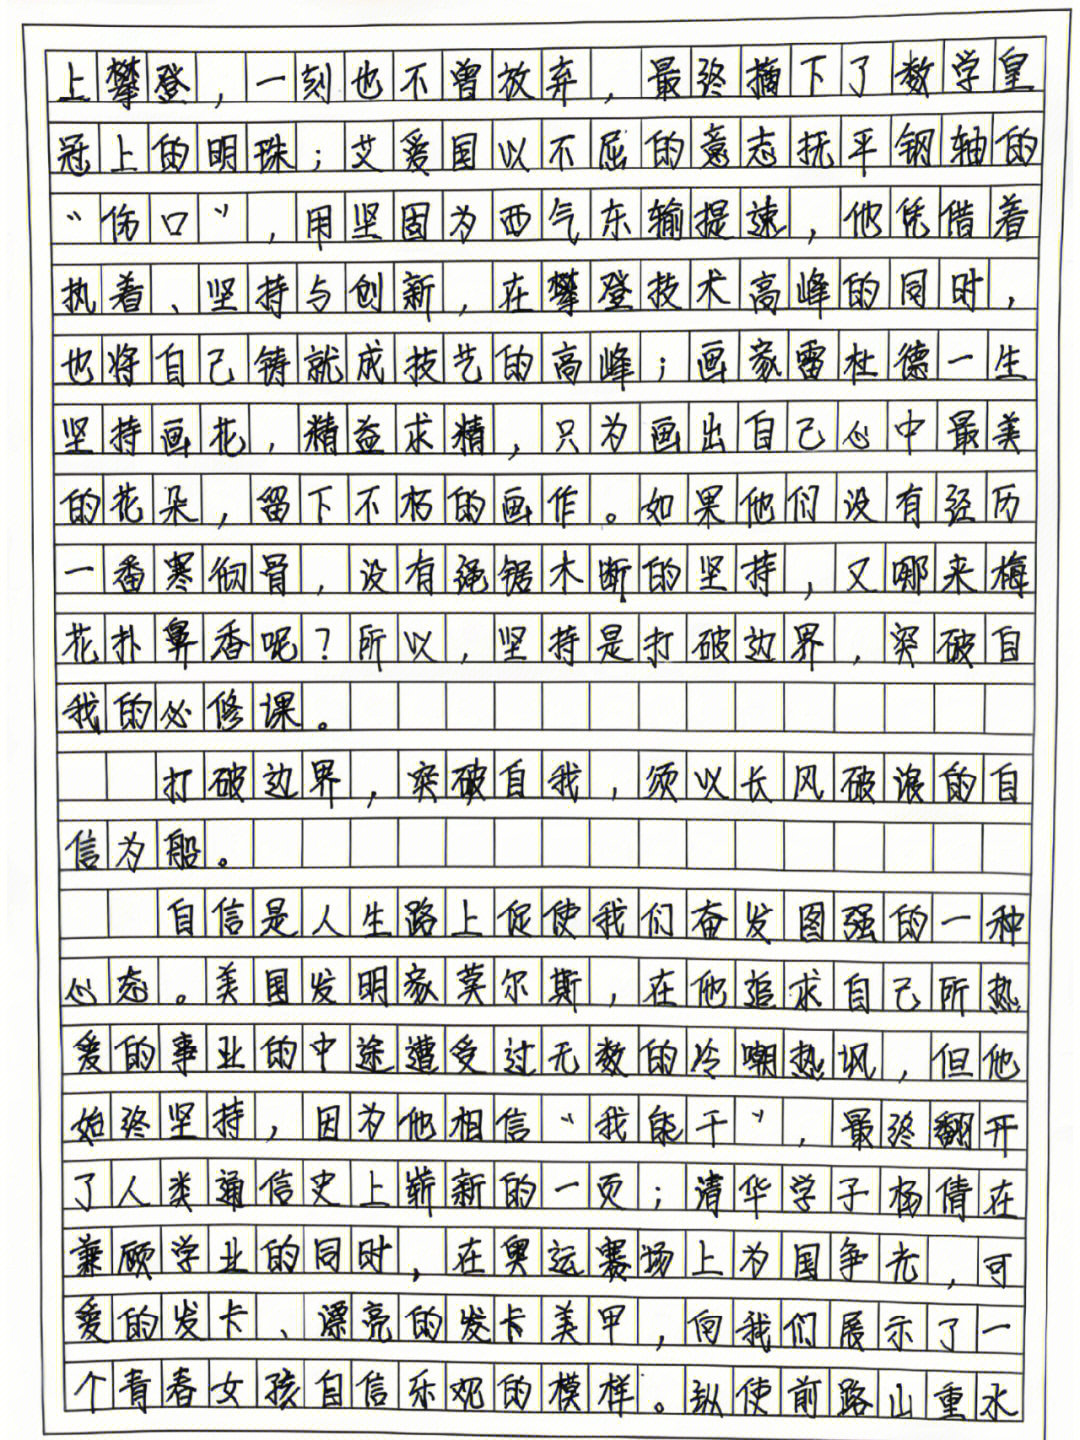 上攀登，一刻也不曾放弃，最终摘下了数学皇
冠上的明珠；艾爱国以不屈的意志抚平钢轴的
“伤口”，用坚固为西气东输提速，他凭借着
执着、坚持与创新，在攀登技术高峰的同时，
也将自己铸就成技艺的高峰；画家雷杜德一生
坚持画花，精益求精，只为画出自己心中最美
的花朵，留下不朽的画作。如果他们没有经历
一番寒彻骨，没有绳锯木断的坚持，又哪来梅
花扑鼻香呢？所以，坚持是打破边界，突破自
我的必修课。
打破边界，突破自我，须以长风破浪的自
信为船。
自信是人生路上促使我们奋发图强的一种
心态。美国发明家莫尔斯，在他追求自己所热
爱的事业的中途遭受过无数的冷嘲热讽，但他
始终坚持，因为他相信“我能干”，最终翻开
了人类通信史上崭新的一页；清华学子杨倩在
兼顾学业的同时，在奥运赛场上为国争光，可
爱的发卡、漂亮的发卡美甲，向我们展示了一
个青春女孩自信乐观的模样。纵使前路山重水